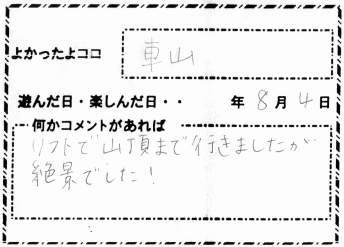 よかったよココ 車山
遊んだ日・楽しんだ日・・ 年 8月 4日
何かコメントがあれば
リフトで山頂まで行きましたが
絶景でした！